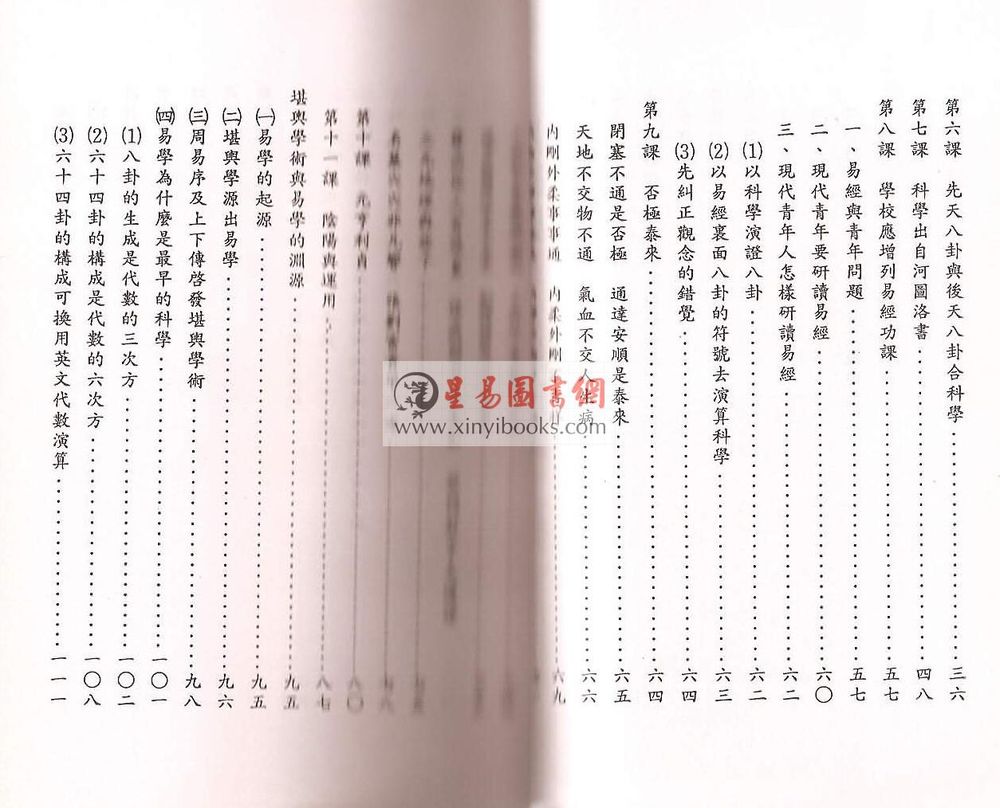 第六課 先天八卦與後天八卦合科學…三六
第七課 科學出自河圖洛書…四八
第八課 學校應增列易經功課…五七
一、易經與青年問題…五七
二、現代青年要研讀易經…六〇
三、現代青年人怎樣研讀易經…六二
⑴以科學演證八卦…六二
⑵以易經裏面八卦的符號去演算科學…六三
⑶先糾正觀念的錯覺…六四
第九課 否極泰來…六四
閉塞不通是否極 通達安順是泰來…六五
天地不交物不通 氣血不交人生病…六六
內剛外柔事事通 內柔外剛…六九
第十課 元亨利貞…八〇
第十一課 陰陽與運用…八七
堪輿學術與易學的淵源…九五
㈠易學的起源…九五
㈡堪輿學源出易學…九六
㈢周易序及上下傳啓發堪輿學術…九八
㈣易學為什麼是最早的科學…一〇一
⑴八卦的生成是代數的三次方…一〇二
⑵六十四卦的構成是代數的六次方…一〇八
⑶六十四卦的構成可換用英文代數演算…一一一
星易圖書網
www.xinyibooks.com